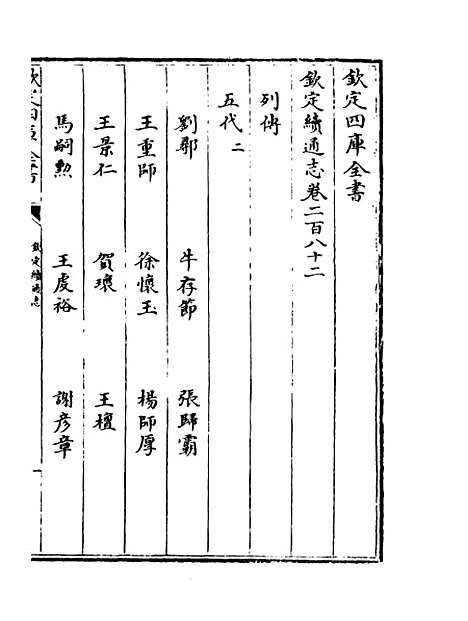 欽定四庫全書
欽定續通志卷二百八十二
列傳
五代二
劉鄩 牛存節 張歸霸
王重師 徐懷玉 楊師厚
王景仁 賀瓌 王檀
馬嗣勲 王虔裕 謝彦章
欽定四庫全書
欽定續通志
一